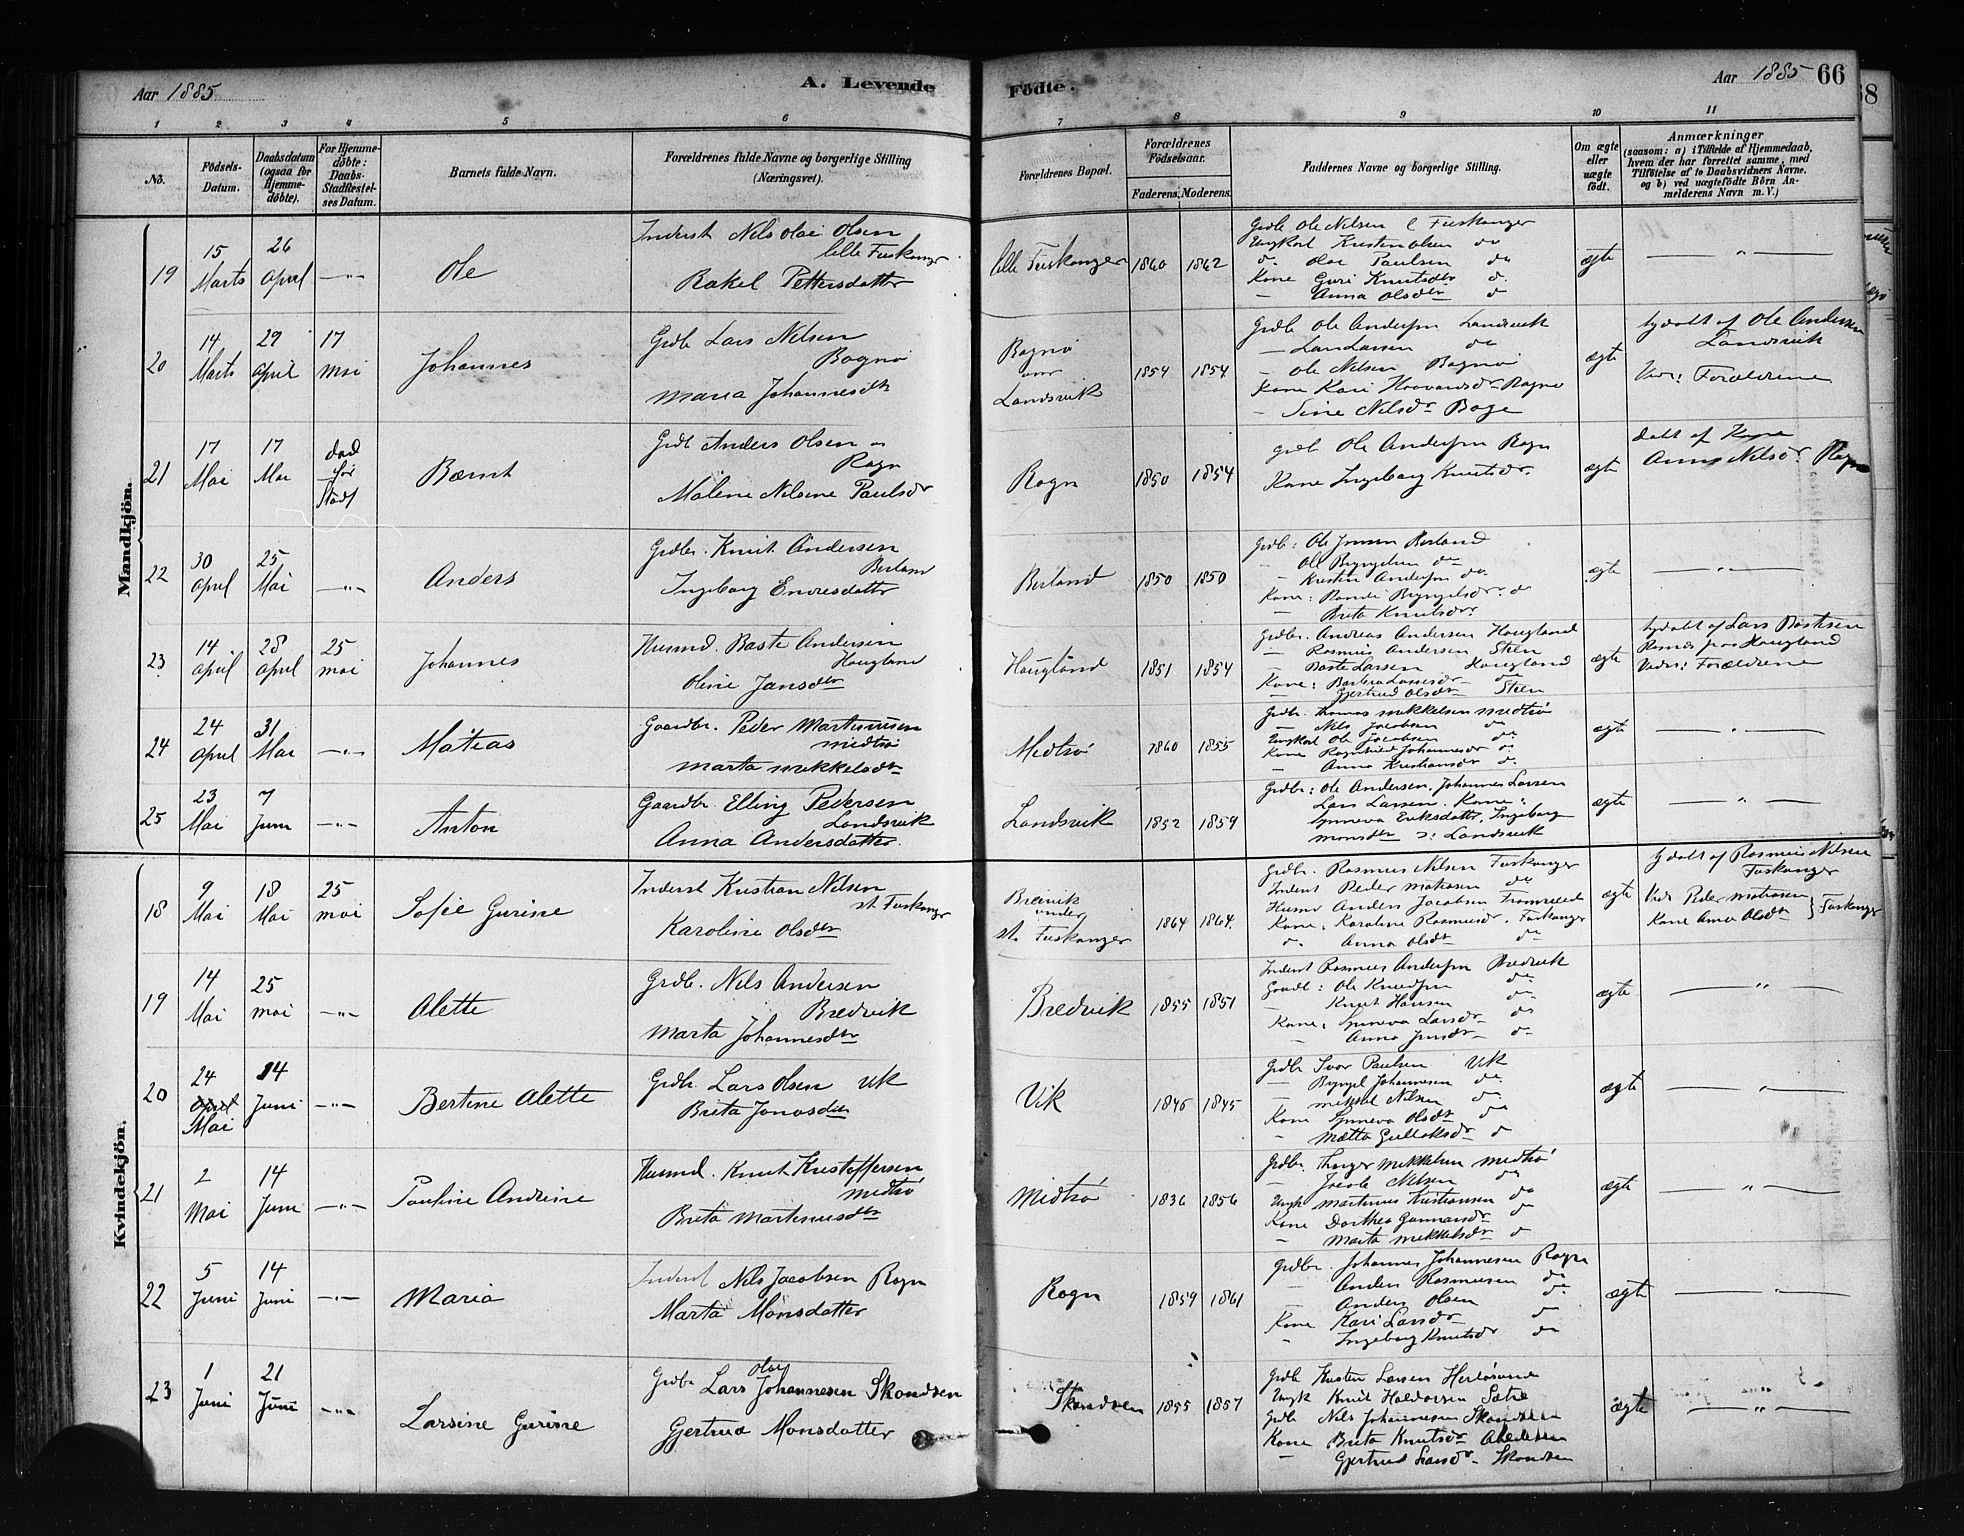 Aar 1885
A. Levende
Födte.
Aar 1885 66
1 2 3 4 5 6 7 8 9 10 11
No.
Födsels-Datum.
Daabsdatum (ogsaa for Hjemme-döbte).
For Hjemme-döbte: Daabs-Stadfæstel-ses Datum.
Barnets fulde Navn.
Forældrenes fulde Navne og borgerlige Stilling (Næringsvei).
Forældrenes Bopæl.
Forældrenes Födselsaar.
Faderens. Moderens.
Faddernes Navne og borgerlige Stilling.
Om ægte eller uægte födt.
Anmærkninger
(saasom: a) i Tilfælde af Hjemmedaab, hvem der har forrettet samme, med Tilföielse af to Daabsvidners Navne, og b) ved uægtefödte Börn An-melderens Navn m. V.)
Mandkjön.
19 15 Marts 26 April —"— Ole
Inderst Nils Olai Olsen
lille Fuskanger
Rakel Pettersdatter
lille Fuskanger 1860 1862
Grdb Ole Nilsen l Fuskanger
Ungkarl Kristen Olsen do
d. Olai Paulsen do
Kone Guri Knutsdtr d.
— Anna Olsdtr d
ægte — " —
20 14 Marts 29 April 17 Mai Johannes
Grdb Lars Nilsen
Bognø
Maria Johannesdtr
Bognø
Landsvik 1854 1854
Grdb Ole Andersen Landsvik
— Lars Larsen do
— Ole Nilsen Bognø
Kone Kari Haavardsdr Bognø
— Sine Nilsdr Boge
ægte
hjdøbt af Ole Andersen
Landsvik
Vidn: Forældrene
21 17 Mai 17 Mai død før Stadf Bernt
Grdb Anders Olsen
Rogn
Malene Nilsine Paulsdr
Rogn 1850 1854
Grdb Ole Andersen Rogn
Kone Ingeborg Knutsdr.
ægte
døbt af Kone
Anna Nilsdr. Rogn
22 30 April 25 Mai —"— Anders
Grdbr. Knut Andersen
Berland
Ingeborg Endresdatter
Berland 1850 1850
Grdb: Ole Jensen Berland
— Ole Brynjelsen do
— Kristen Andersen do.
Kone: Brynjelsdr. d
— Brita Knutsdr.
ægte — " —
23 14 April 28 April 25 Mai Johannes
Husmd. Baste Andersen
Hougland
Oline Jansdtr
Hougland 1851 1854
Grdbr. Andreas Andersen Hougland
— Rasmus Andersen Steen
— Baste Larsen Hougland
Kone: Barbra Larsdr do
— Gjertrud Olsdtr Steen
ægte
hjdøbt af Lars Bastesen
Hougland
Vidn: Forældrene
24 24 April 31 Mai —"— Matias
Gaardbr. Peder Martinussen
Midtsø
Marta Mikkelsdtr
Midtsø 1860 1855
Grdbr. Thomas Mikkelsen Midtsø
— Nils Jacobsen do
Ungkarl Ole Jacobsen do
Kone Ragnhild Johannesdr d.
— Anna Kristiansdr d.
ægte — " —
25 23 Mai 7 Juni —"— Anton
Gaardbr. Elling Pedersen
Landsvik
Anna Andersdatter.
Landsvik 1852 1859
Grdbr: Ole Andersen, Johannes Larsen
Lars Larsen. Kone:
Synneva Eriksdatter, Ingeborg
Monsdtr Landsvik
ægte — " —
Kvindekjön.
18 9 Mai 18 Mai 25 Mai Sofie Gurine
Inderst Kristian Nilsen
st. Fuskanger
Karoline Olsdtr
Bredvik
under
st. Fuskanger 1864 1864.
Grdbr. Rasmus Nilsen Fuskanger
Inderst Peder Matiasen do
Husmd Anders Jacobsen
Kone: Karoline Rasmusdr. Fuskanger
d. Anna Olsdtr do
ægte
hjdøbt af Rasmus Nilsen
Fuskanger
Vidn Peder Matiasen
Kone Anna Olsdtr } Fuskanger
19 14 Mai 25 Mai —"— Alette
Grdb. Nils Andersen
Bredvik
Marta Johannesdtr
Bredvik 1855 1851
Inderst Rasmus Andersen Bredvik
Gaardb: Ole Knudsen do
— Knut Hansen do
Kone: Synneva Larsdr do
— Anna Jensdr d
ægte — " —
20 24 ~~April~~ Mai 14 Juni —"— Bertine Alette
Grdb. Lars Olsen Vik
Brita Jonasdtr
Vik 1846 1845
Grdbr Ivar Paulsen Vik
— Johannesen do
— Mikkel Nilsen d.
Kone Synneva Olsdtr do
— Mætta Gullaksdr d
ægte — " —
21 2 Mai 14 Juni —"— Pauline Andrine
Husmd. Knut Kristoffersen
Midtsø
Brita Martinusdtr
Midtsø 1836 1856
Grdbr. Mikkelsen Midtsø
— Nilsen do
Ungk Martinus Kristiansen do
Kone Dorthea Gunnarsdr d
— Marta Mikkelsdr d
ægte — " —
22 5 Juni 14 Juni —"— Maria
Inderst Nils Jacobsen Rogn
Marta Monsdatter
Rogn 1859 1861
Grdbr. Johannes Johannesen Rogn
— Anders Rasmussen do
— Anders Olsen d.
Kone Kari Larsdr d
" Ingeborg Knutsdr do
ægte — " —
23 1 Juni 21 Juni —"— Larsine Gurine
Grdbr Lars Olai Johannesen Skondsen
Gjertrud Monsdatter
Skondsen 1855 1857
Grdb Kristen Larsen Herløsund
Ungk Knut Haldorsen Sætre
Grdb Nils Johannesen Skondsen
Kone Brita Knutsdr
Gjertrud Larsdr Skondsen
ægte — " —